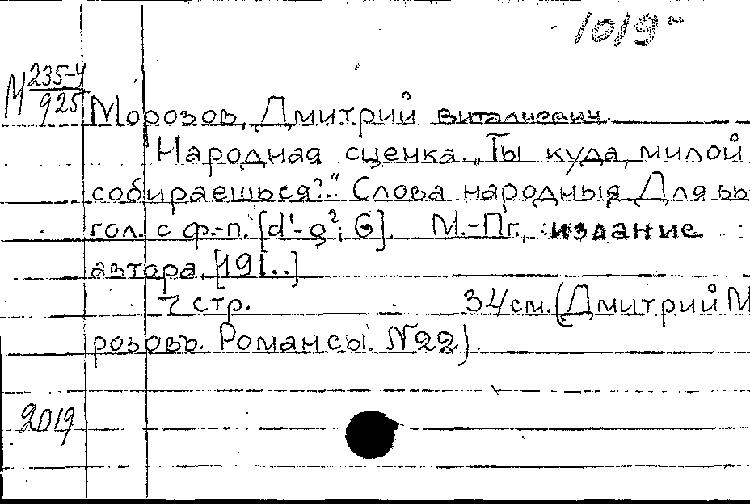 1019
М 235-4
925
Морозов, Дмитрий Виталиевич
Народная сценка. „Ты куда, милой
собираешься?". Слова народныя. Для вы
гол. с ф.-п. [d¹-g²; G]. М.-Пг., издание
автора, [191..]
7 стр. 34 см. (Дмитрий М
розовъ. Романсы. №22).
2019